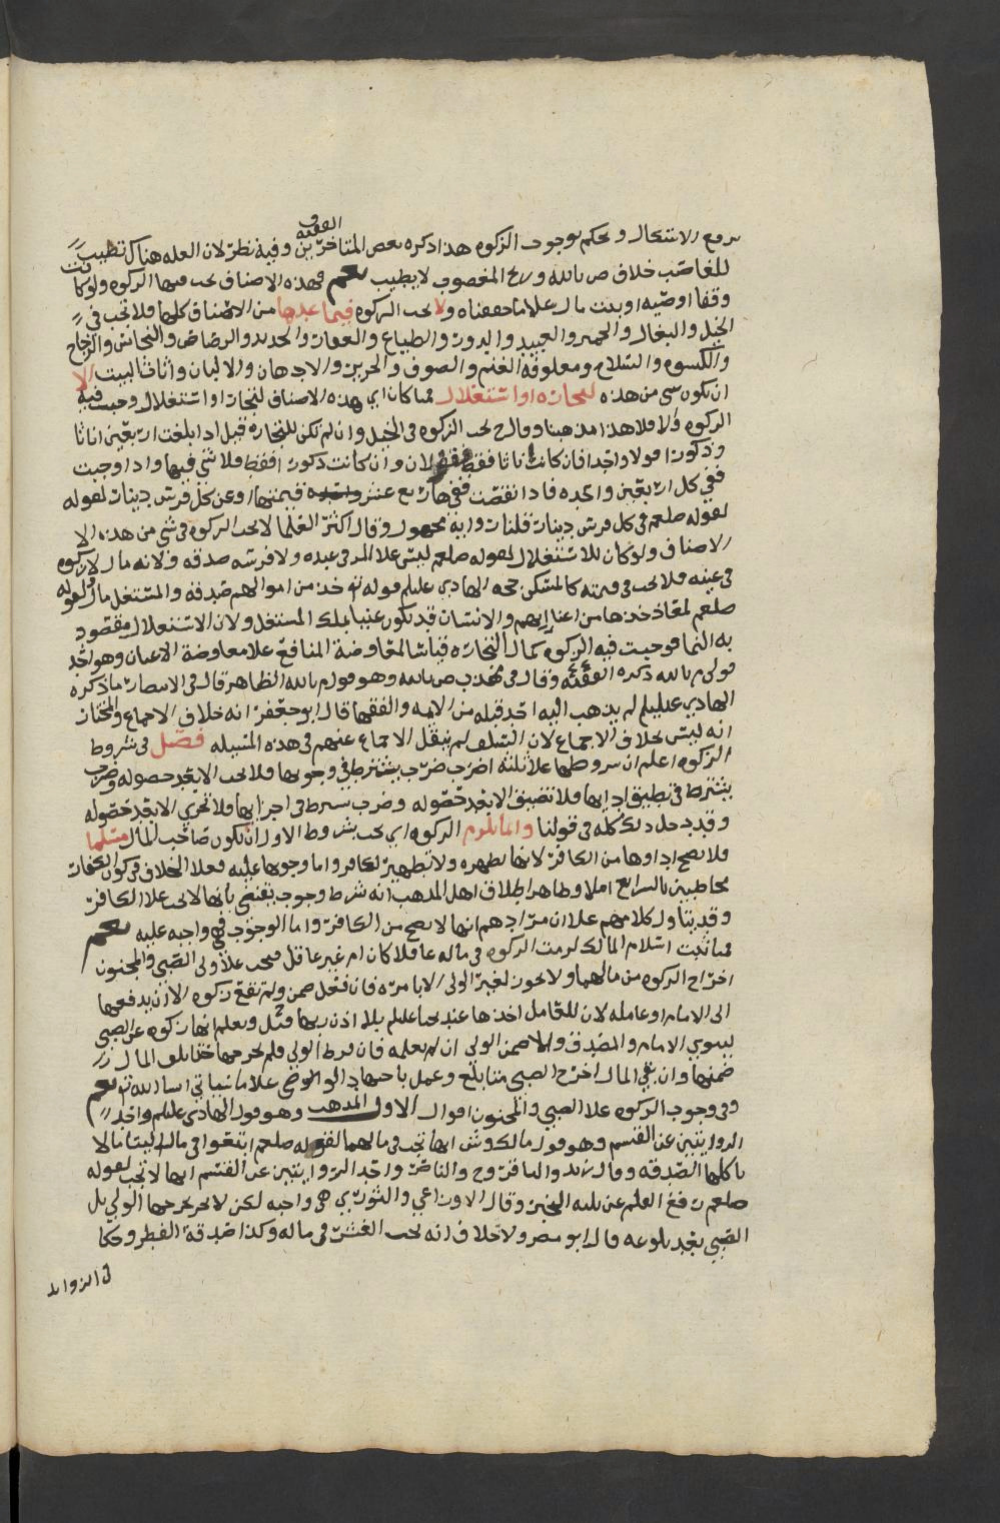 الفقيه ف
يرفع الاشكال ويحكم بوجوب الزكوه هذا ذكره بعض المتاخرين وفيه نظر لان العله هناك تطييب
للغاصب خلاف ص بالله وربح المغصوب لا يطيب نعم فهذه الاصناف تجب فيها الزكوه ولو كانت
وقفا او صيه او بيت مال علا ما حققناه ولا تجب الزكوه فيما عداها من الاصناف كلها فلا تجب في
الخيل والبغال والحمير والعبيد والدور والضياع والعقار والحديد والرصاص والنحاس والزجاج
والكسوه والسلاح ومعلوفة الغنم والصوف والحرير والادهان والالبان واثاث البيت الا
ان يكون شي من هذه لتجاره او استغلال فما كان اي هذه الاصناف لتجاره او استغلال وجبت فيه
الزكوه والا فلا هذا مذهبنا وقال ح تجب الزكوه في الخيل وان لم تكن للتجاره قيل اذا بلغت اربعين اناثا
وذكورا قولا واحدا فان كانت اناثا فقط فقولان وان كانت ذكورا فقط فلا شي فيها واذا وجبت
ففي كل اربعين واحده فاذا نقصت ففيها ربع عشر قيمتها او عن كل فرس دينار لقوله
لقوله صلعم في كل فرس دينار قلنا راويه مجهول وقال اكثر العلما لا تجب الزكوه في شي من هذه الا
الاصناف ولو كان للاستغلال لقوله صلعم ليس علا المر في عبده ولا فرسه صدقه ولانه مال لا زكوه
في عينه فلا تجب في قيمته كالمسكن حجه الهادي عليلم قوله تع خذ من اموالهم صدقه والمستغل مال ولقوله
صلعم لمعاذ خذها من اغنيايهم والانسان قد يكون غنيا بملك المستغل ولان الاستغلال مقصود
به النما فوجبت فيه الزكوه كمال التجاره قياسا لمعاوضة المنافع علا معاوضة الاعيان وهو احد
قولي م بالله ذكره الفقيه ع وقال في مهذب ص بالله وهو قول م بالله الظاهر قال في الانتصار ما ذكره
الهادي عليلم لم يذهب اليه احد قبله من الايمه والفقها قال ابو جعفر انه خلاف الاجماع والمختار
انه ليس بخلاف الاجماع لان السلف لم ينقل الاجماع عنهم في هذه المسيله فصل في شروط
الزكوه اعلم ان شروطها علا ثلثه اضرب ضرب يشترط في وجوبها فلا تجب الا بعد حصوله وضرب
يشترط في تضييق ادايها فلا تضيق الا بعد حصوله وضرب شرط في اجزايها فلا تجزي الا بعد حصوله
وقد دخل ذلك كله في قولنا وانما تلزم الزكوه اي تجب بشروط الاول ان يكون صاحب المال مسلما
فلا يصح اداوها من الكافر لانها تطهره ولا تطهير لكافر واما وجوبها عليه فعلا الخلاف في كون الكفار
مخاطبين بالشرايع ام لا وظاهر اطلاق اهل المذهب انه شرط وجوب يقتضي بانها لا تجب علا الكافر
وقد يتاول كلامهم علا ان مرادهم انها لا تصح من الكافر واما الوجوب فهي واجبه عليه نعم
فما ثبت اسلام المالك لزمت الزكوه في ماله عاقلا كان ام غير عاقل فيجب علا ولي الصبي والمجنون
اخراج الزكوه من مالهما ولا يجوز لغير الولي الا بامره فان فعل ضمن ولم تقع زكوه الا ان يدفعها
الى الامام او عامله لان للعامل اخذها عند يحيا عليلم بلا اذن ربها قيل ويعلم انها زكوه عن الصبي
لينوي الامام والمصدق والا ضمن الولي ان لم يعلمه فان فرط الولي فلم يخرجها حتا تلف المال
ضمنها وان بقي المال اخرج الصبي متا بلغ وعمل باجتهاده لا الوصي علا ما سياتي ان شا الله تع نعم
وفي وجوب الزكوه علا الصبي والمجنون اقوال الاول المذهب وهو قول الهادي عليلم واحد
الروايتين عن القسم وهو قول مالك وش انها تجب في مالهما لقوله صلعم ابتغوا في مال اليتاما لا
تاكلها الصدقه وقال زيد والباقر وح والناصر واحد الروايتين عن القسم انها لا تجب لقوله
صلعم رفع القلم عن ثلثه الخبر وقال الاوزاعي والثوري هي واجبه لكن لا يخرجها الولي بل
الصبي بعد بلوغه قال ابو مضر ولا خلاف انه تجب العشر في ماله وكذا صدقة الفطر وحكا
في الزوايد